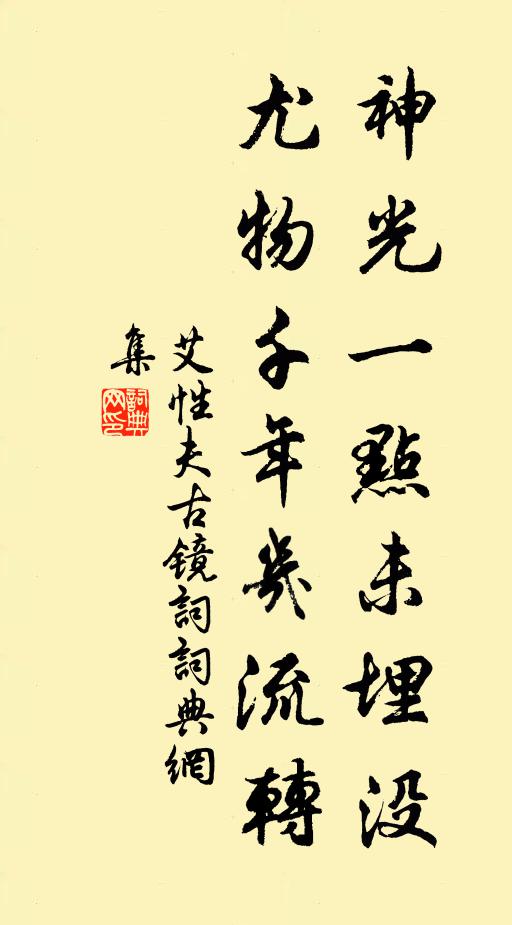 神光一點未埋没
尤物千年幾流轉
艾性夫古镜詞詞典網
集
詞典网印